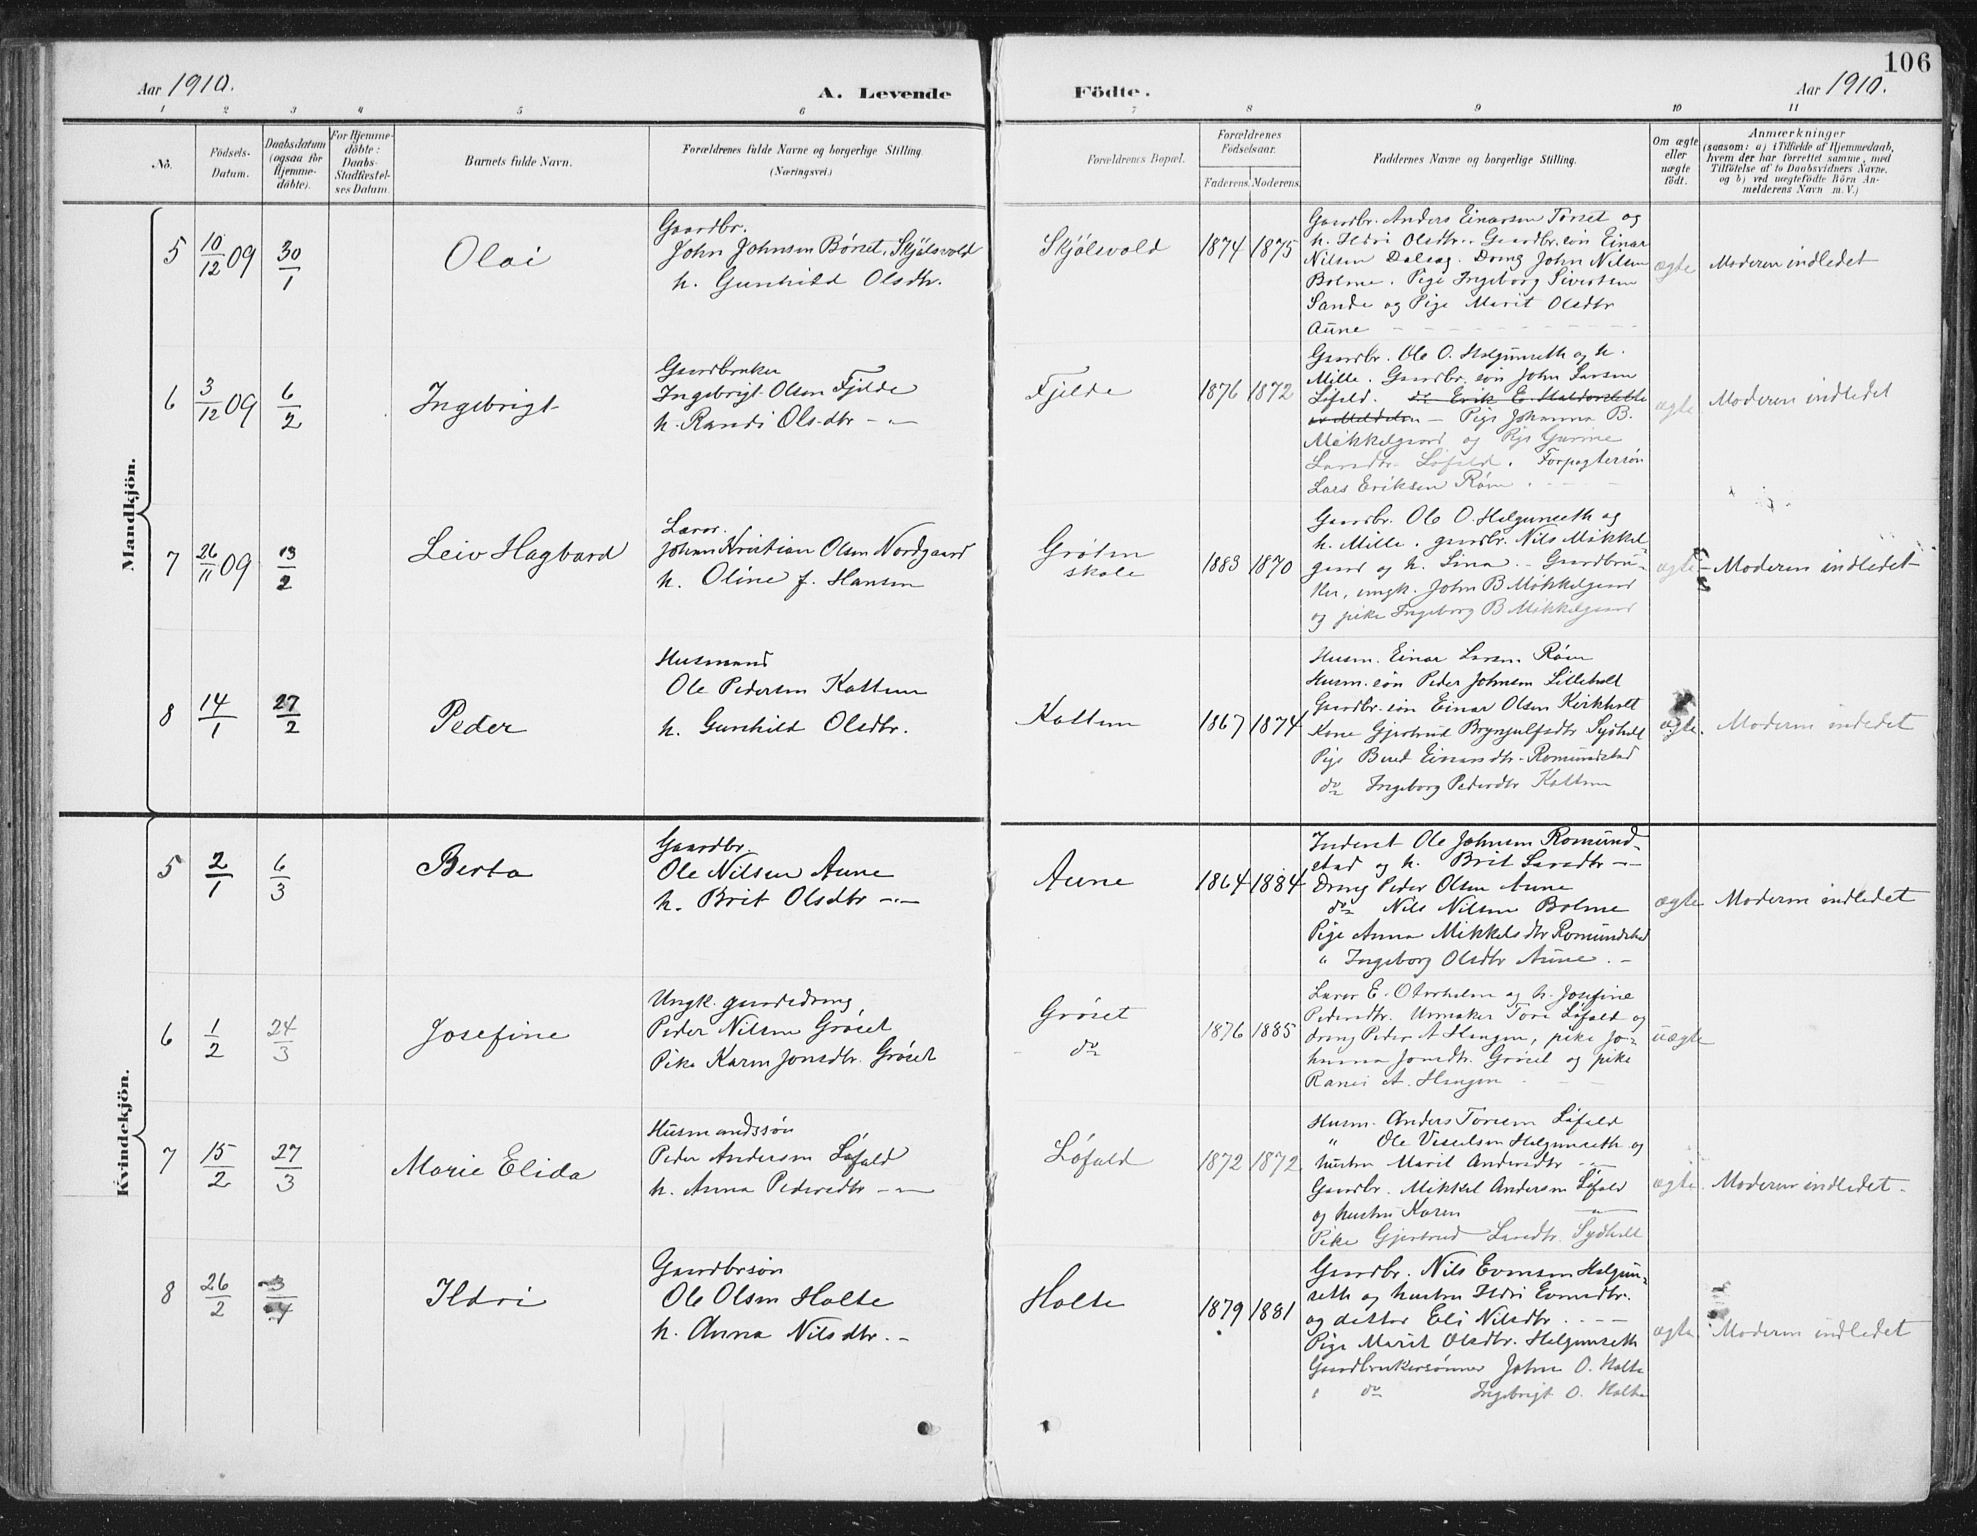 106
Aar 1910.
A. Levende
Födte.
Aar 1910.
1 2 3 4 5 6 7 8 9 10 11
No.
Födsels-
Datum.
Daabsdatum
(ogsaa for
Hjemme-
döbte).
For Hjemme-
döbte:
Daabs-
Stadfæstel-
ses Datum.
Barnets fulde Navn.
Forældrenes fulde Navne og borgerlige Stilling.
(Næringsvei.)
Forældrenes Bopæl.
Forældrenes
Födselsaar.
Faderens. Moderens.
Faddernes Navne og borgerlige Stilling.
Om ægte
eller
uægte
födt.
Anmærkninger
(saasom: a) i Tilfælde af Hjemmedaab,
hvem der har forrettet samme, med
Tilföielse af to Daabsvidners Navne.
og b) ved uægtefödte Börn An-
melderens Navn m. V.)
Mandkjön.
5 10/12 09 30/1
Olai
Gaardbr.
John Johnsen Börset, Skjölsvold
h. Gunhild Olsdtr.
Skjölsvold
1874 1875
Gaardbr. Anders Einarsen Torset og
h. Ildri Olsdtr. Gaardbr.sön Einar
Nilsen Dalsag. Dreng John Nilsen
Bolme. Pige Ingeborg Sivertsen
Sande og Pige Marit Olsdtr
Aune
ægte
Moderen indledet
6 3/12 09 6/2
Ingebrigt
Gaardbruker
Ingebrigt Olsen Fjelde
h. Randi Olsdtr - " -
Fjelde
1876 1872
Gaardbr. Ole O. Helgunseth og h.
Mille. Gaardbr.sön John Larsen
Löfald. do Erik E.
Pige Johanna B.
Mikkelgaard og Pige Gurine
Larsdtr Löfald. Forpagtersön
Lars Eriksen Röen.
ægte
Moderen indledet
7 26/11 09 13/2
Leiv Hagbard
Lærer.
Johan Kristian Olsen Nordgaard
h. Oline f. Hansen
Gröten
skole
1883 1870
Gaardbr. Ole O. Helgunseth og
h. Mille. gaardbr. Nils Mikkel-
gaard og h. Lina. - Gaardbru-
ker, ungk. John B Mikkelgaard
og pike Ingeborg B Mikkelgaard
ægte
Moderen indledet
8 14/1 27/2
Peder
Husmand
Ole Pedersen Kattum
h. Gunhild Olsdtr.
Kattum
1867 1874
Husm. Einar Larsen Röen
Husm.sön Peder Johnsen Lilleholt
Gaardbr.sön Einar Olsen Kirkholt
Kone Gjertrud Brynjulfsdtr Sydholt
Pige Beret Einarsdtr. Romundstad
do Ingeborg Pedersdtr Kattum
ægte
Moderen indledet
Kvindekjön.
5 2/1 6/3
Berta
Gaardbr.
Ole Nilsen Aune
h. Brit Olsdtr - " -
Aune
1864 1884
Inderst Ole Johnsen Romund-
stad og h. Brit Larsdtr - " -
Dreng Peder Olsen Aune
do Nils Nilsen Bolme
Pige Anna Mikkelsdtr Romundstad
" Ingeborg Olsdtr Aune. -
ægte
Moderen indledet
6 1/2 24/3
Josefine
Ungk. gaardsdreng
Peder Nilsen Gröset
Pike Karen Jonsdtr. Gröset
Gröset
do
1876 1885
Lærer E. Oterholm og h. Josefine
Pedersdtr. Urmaker Tore Löfald og
dreng Peder A Haugen, pike Jo-
hanna Jonsdtr. Gröset og pike
Randi A. Haugen
uægte
7 15/2 27/3
Marie Elida
Husmandssön
Peder Andersen Löfald
h. Anna Pedersdtr - " -
Löfald
1872 1872
Husm. Anders Toresen Löfald
" Ole Vesselsen Helgunseth og
hustru Marit Andersdtr - " -
Gaardbr. Mikkel Andersen Löfald
og hustru Karen - " -
Pike Gjertrud Larsdtr. Sydholt
ægte.
Moderen indledet -
8 26/2 3/4
Ildri
Gaardbrsön
Ole Olsen Holte
h. Anna Nilsdtr. -
Holte
1879 1881
Gaardbr. Nils Evensen Helgun-
seth og hustru Ildri Evensdtr.
og datter Eli Nilsdtr.
Pige Marit Olsdtr. Helgunseth
Gaardbrukersönner John O. Holte
" do Ingebrigt O. Holte
ægte.
Moderen indledet